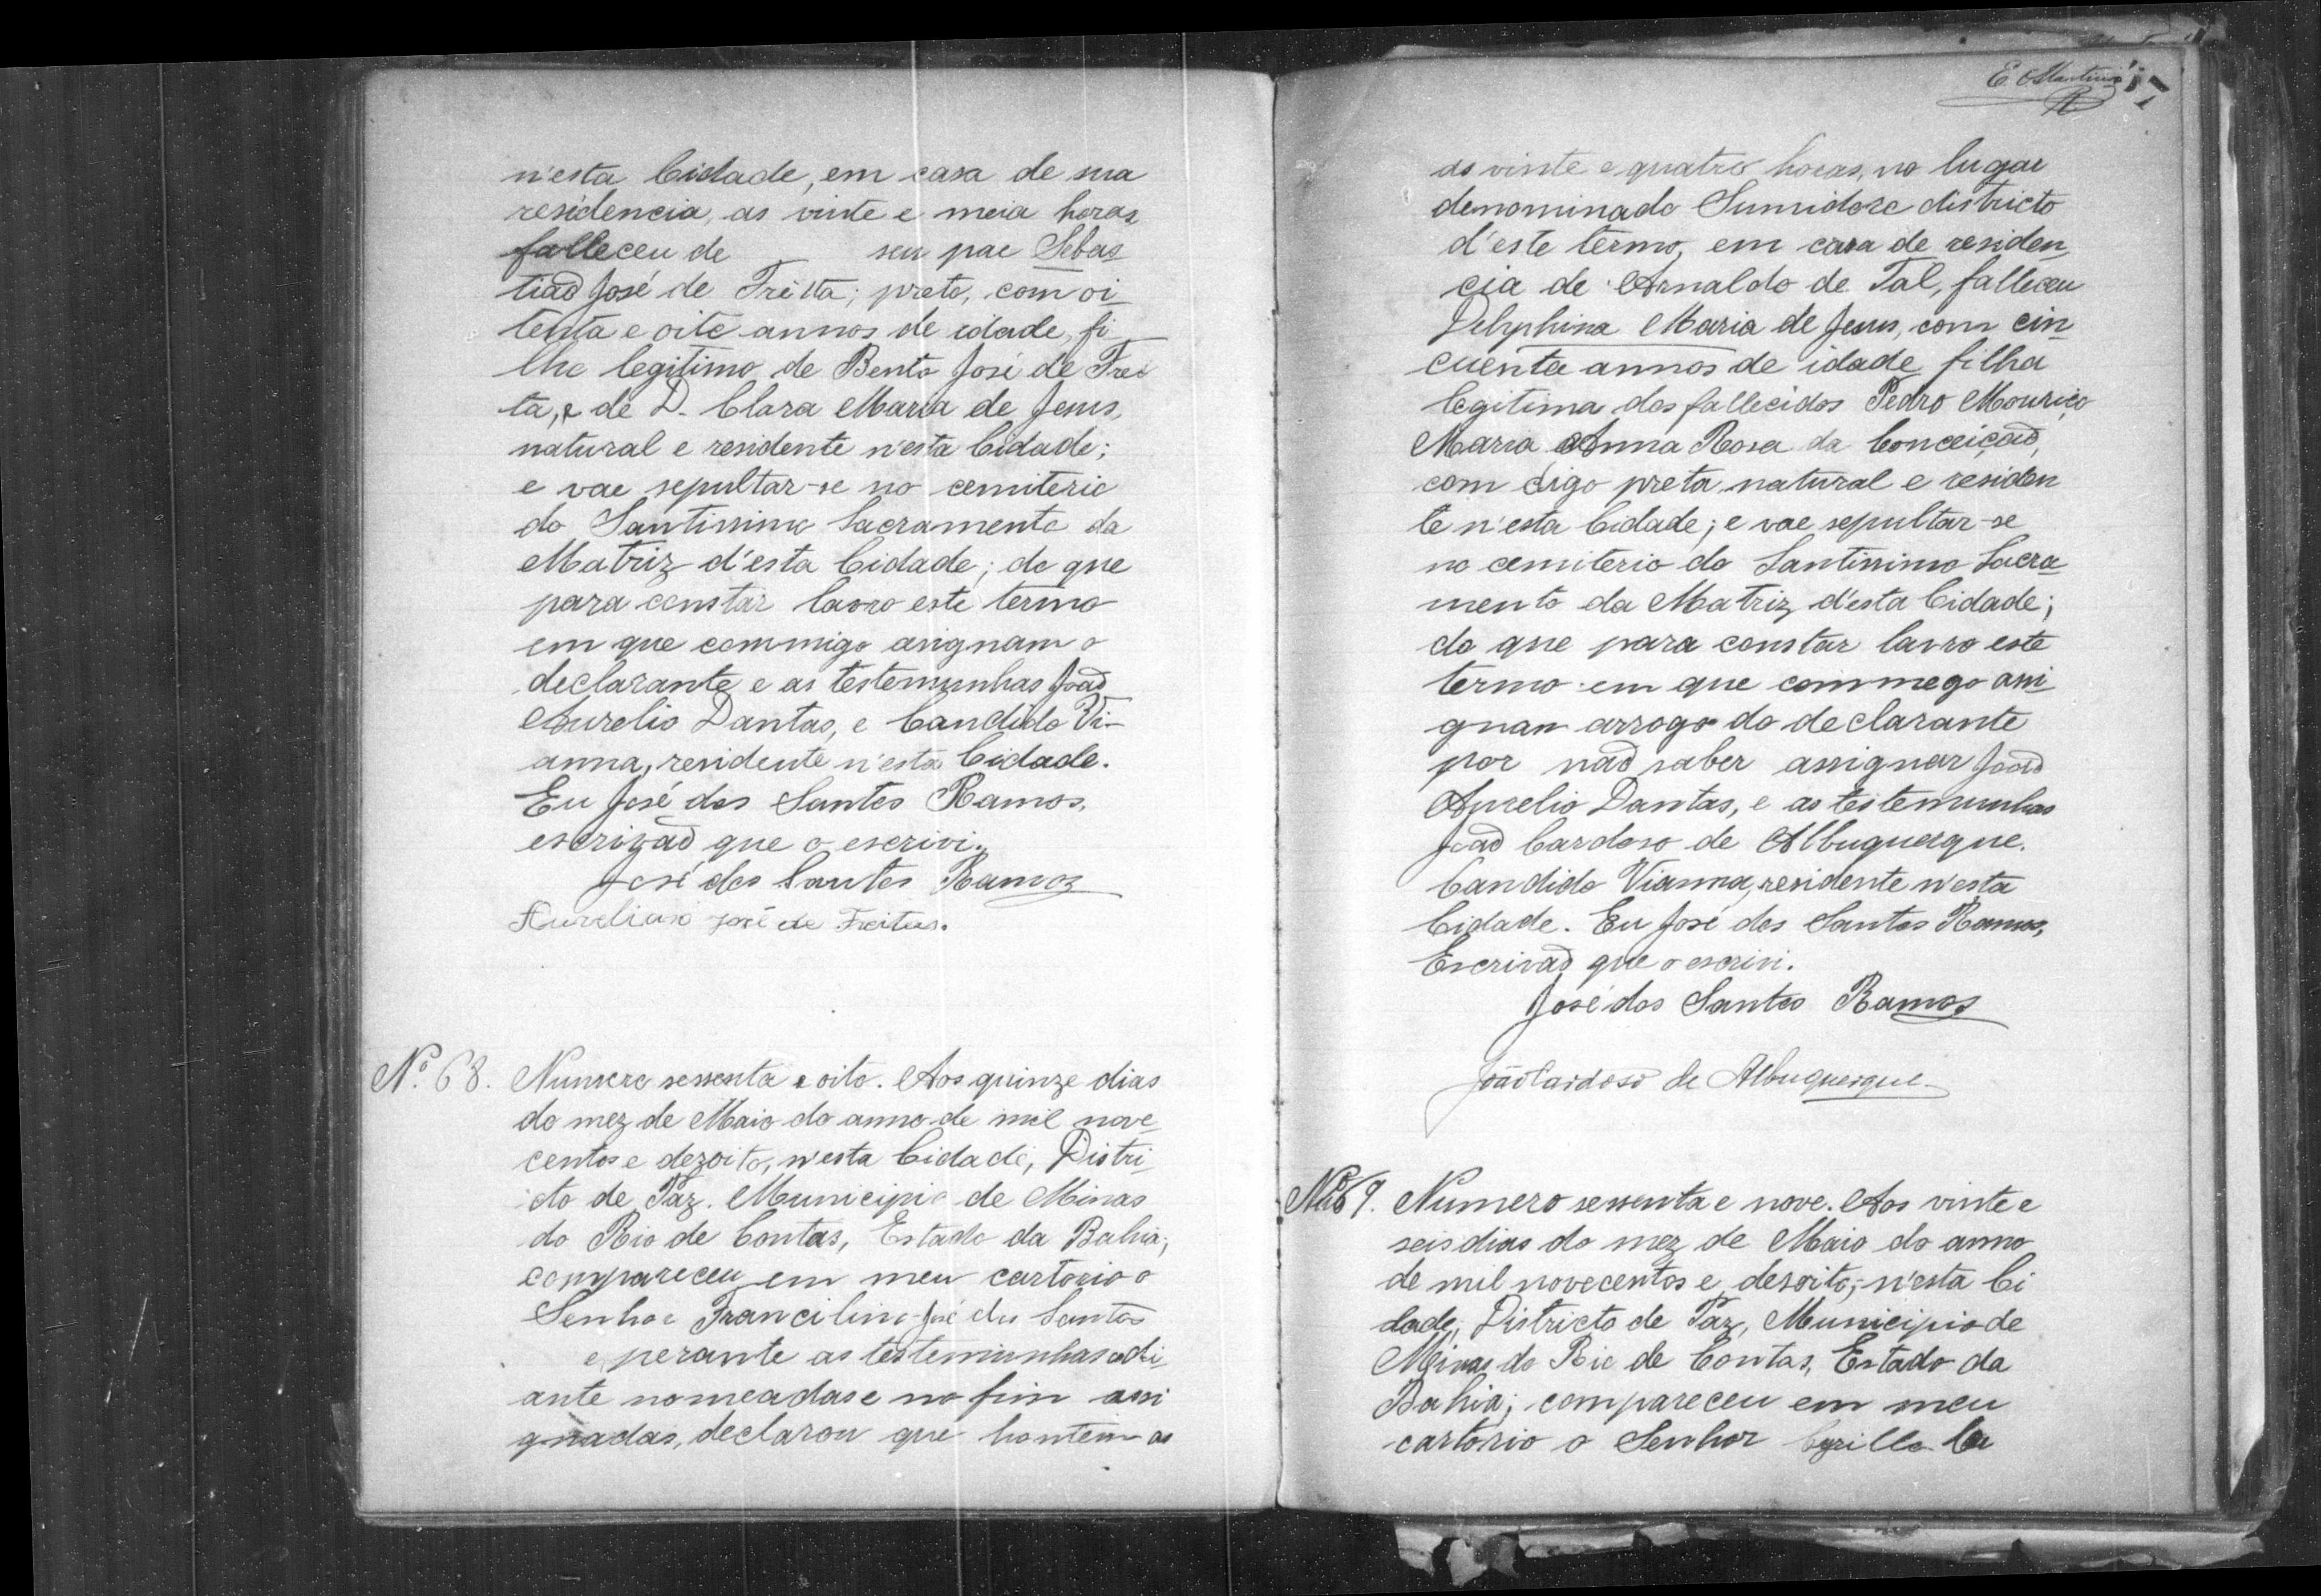 n'esta Cidade, em casa de sua
residencia, as vinte e meia horas,
falleceu de seu pae Sebas
tião José de Freitta; preto, com oi
tenta e oito annos de idade, fi
lho legitimo de Bento José de Frei
ta, e de D. Clara Maria de Jesus,
natural e residente n'esta Cidade;
e vae sepultar-se no cemiterio
do Santissimo Sacramento da
Matriz d'esta Cidade; do que
para constar lavro este termo
em que commigo asignam o
declarante e as testemunhas João
Aurelio Dantas, e Candido Vi-
anna, residente n'esta Cidade.
Eu José dos Santos Ramos,
escrivão que o escrivi.
José dos Santos Ramos
Aureliano José de Freitas.
Nº 68. Numero sessenta e oito. Aos quinze dias
do mez de Maio do anno de mil nove
centos e dezoito, n'esta Cidade, Distri
cto de Paz. Municipio de Minas
do Rio de Contas, Estado da Bahia;
compareceu em meu cartorio o
Senhor Francilino José dos Santos
e perante as testemunhas adi
ante nomeadas e no fim assi
gnadas, declarou que hontem as
E Martins
as vinte e quatro horas, no lugar
denominado Sumidoro districto
d'este termo, em casa de residen
cia de Arnaldo de Tal, falleceu
Delphina Maria de Jesus, com cin
cuenta annos de idade filha
legitima dos fallecidos Pedro Mouriço
Maria Anna Rosa da Conceição,
com digo preta, natural e residen
te n'esta Cidade; e vae sepultar-se
no cemiterio do Santissimo Sacra
mento da Matriz d'esta Cidade;
do que para constar lavro este
termo em que commego assi
gnan arrogo do declarante
por não saber assignar João
Aurelio Dantas, e as testemunhas
João Cardoso de Albuquerque.
Candido Vianna, residente n'esta
Cidade. Eu José dos Santos Ramos,
Escrivão que o escrivi.
José dos Santos Ramos
João Cardoso de Albuquerque
Nº 69. Numero sessenta e nove. Aos vinte e
seis dias do mez de Maio do anno
de mil novecentos e desoito; n'esta Ci
dade, Districto de Paz, Municipio de
Minas do Rio de Contas, Estado da
Bahia; compareceu em meu
cartorio o Senhor Cyrillo